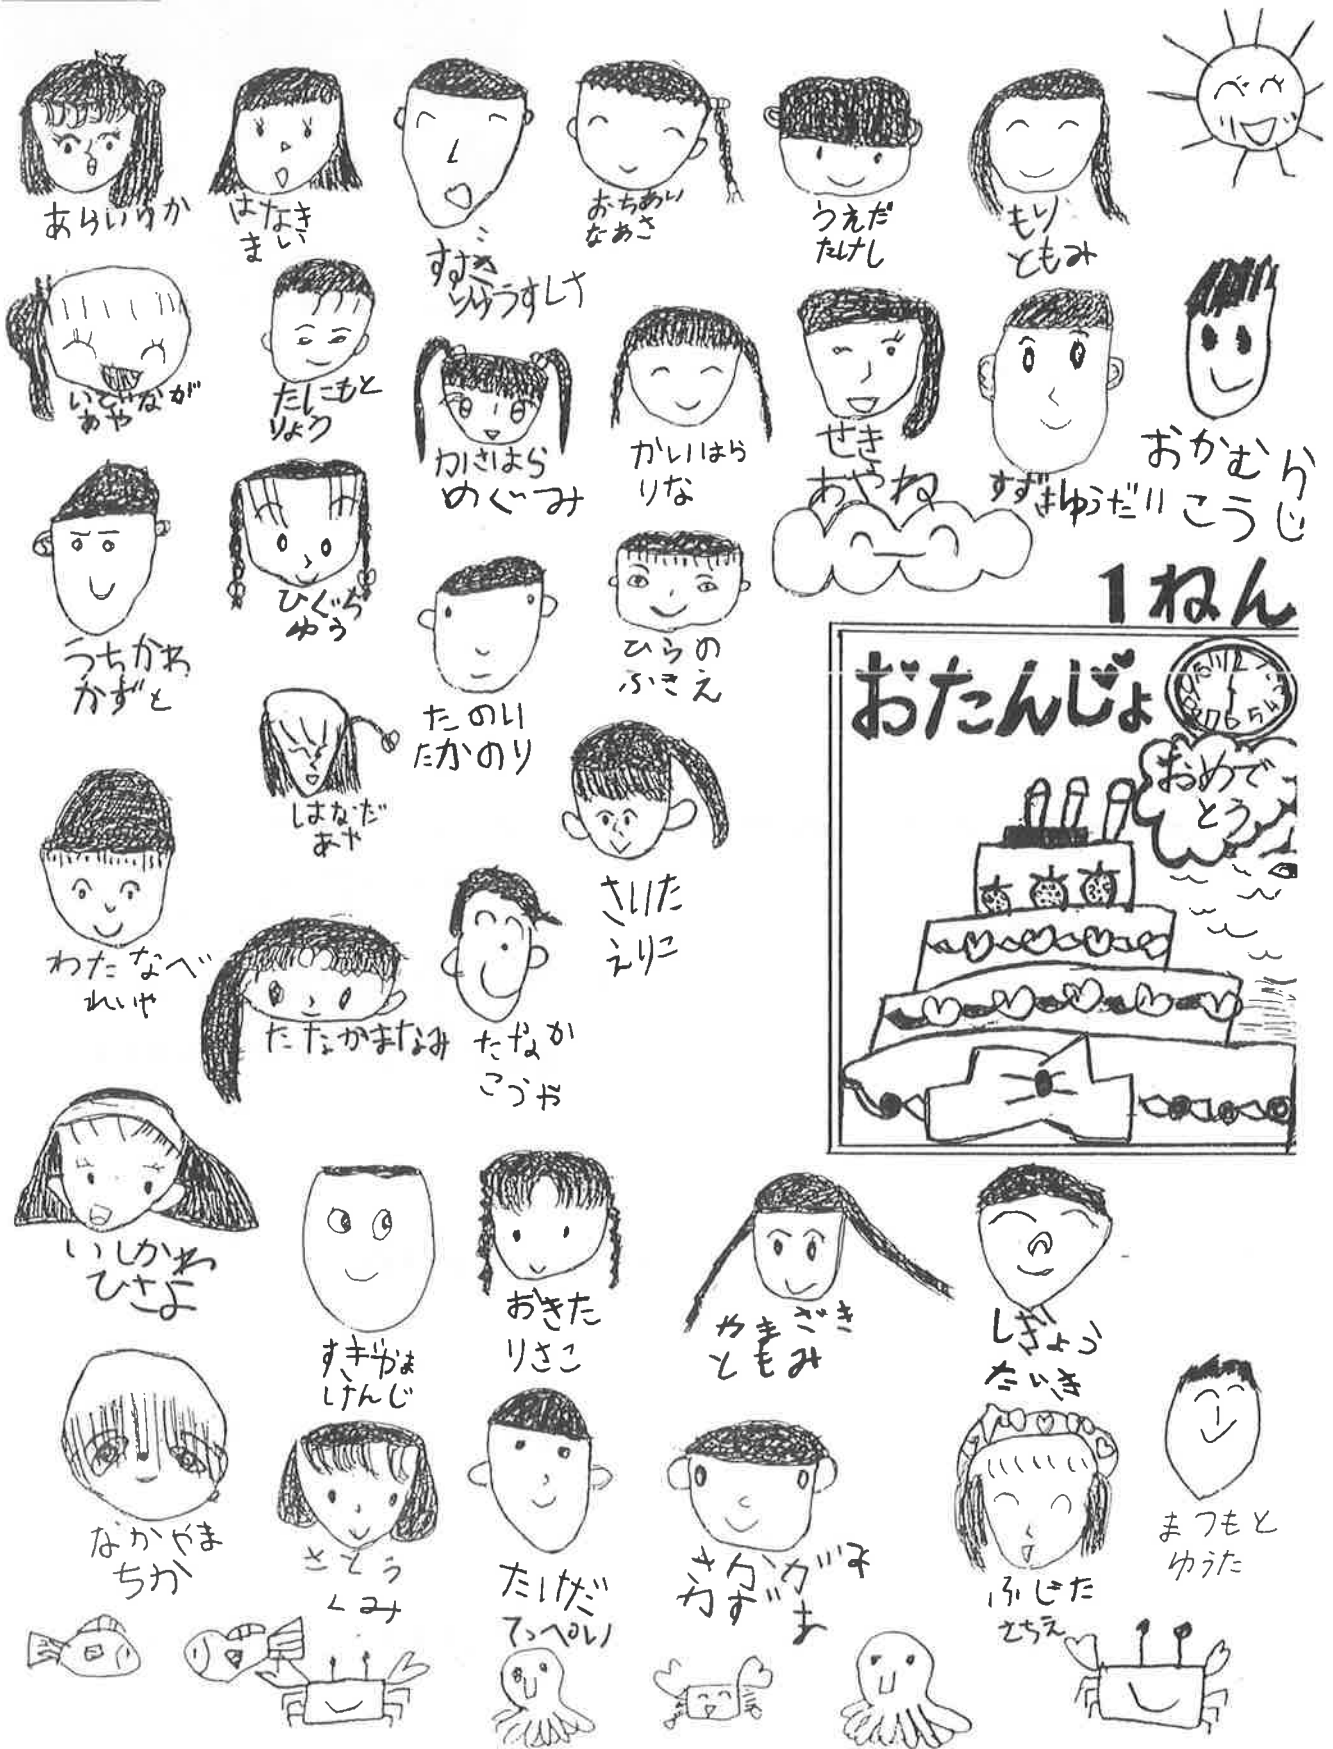 あらいりか
はなき
まい
すずき
りゅうすけ
おちあい
なあさ
うえだ
たけし
もり
ともみ
あや
たしにもと
りょう
かさはら
めぐみ
かいはら
りな
せき
あやね
すずきゆうだい
おかむら
こうじ
うちかわ
かずと
ひぐち
ゆう
たのい
たかのり
ひらの
ふきえ
1ねん
おたんじょ
おめで
とう
はなだ
あや
さいた
えりこ
わたなべ
れいや
たなかまなみ
たなか
こうや
いしかわ
ひさよ
すぎやま
けんじ
おきた
りさこ
やまざき
ともみ
しぎょう
たいき
なかやま
ちか
さとう
くみ
たけだ
てっぺい
かずま
ふじた
さちえ
まつもと
ゆうた